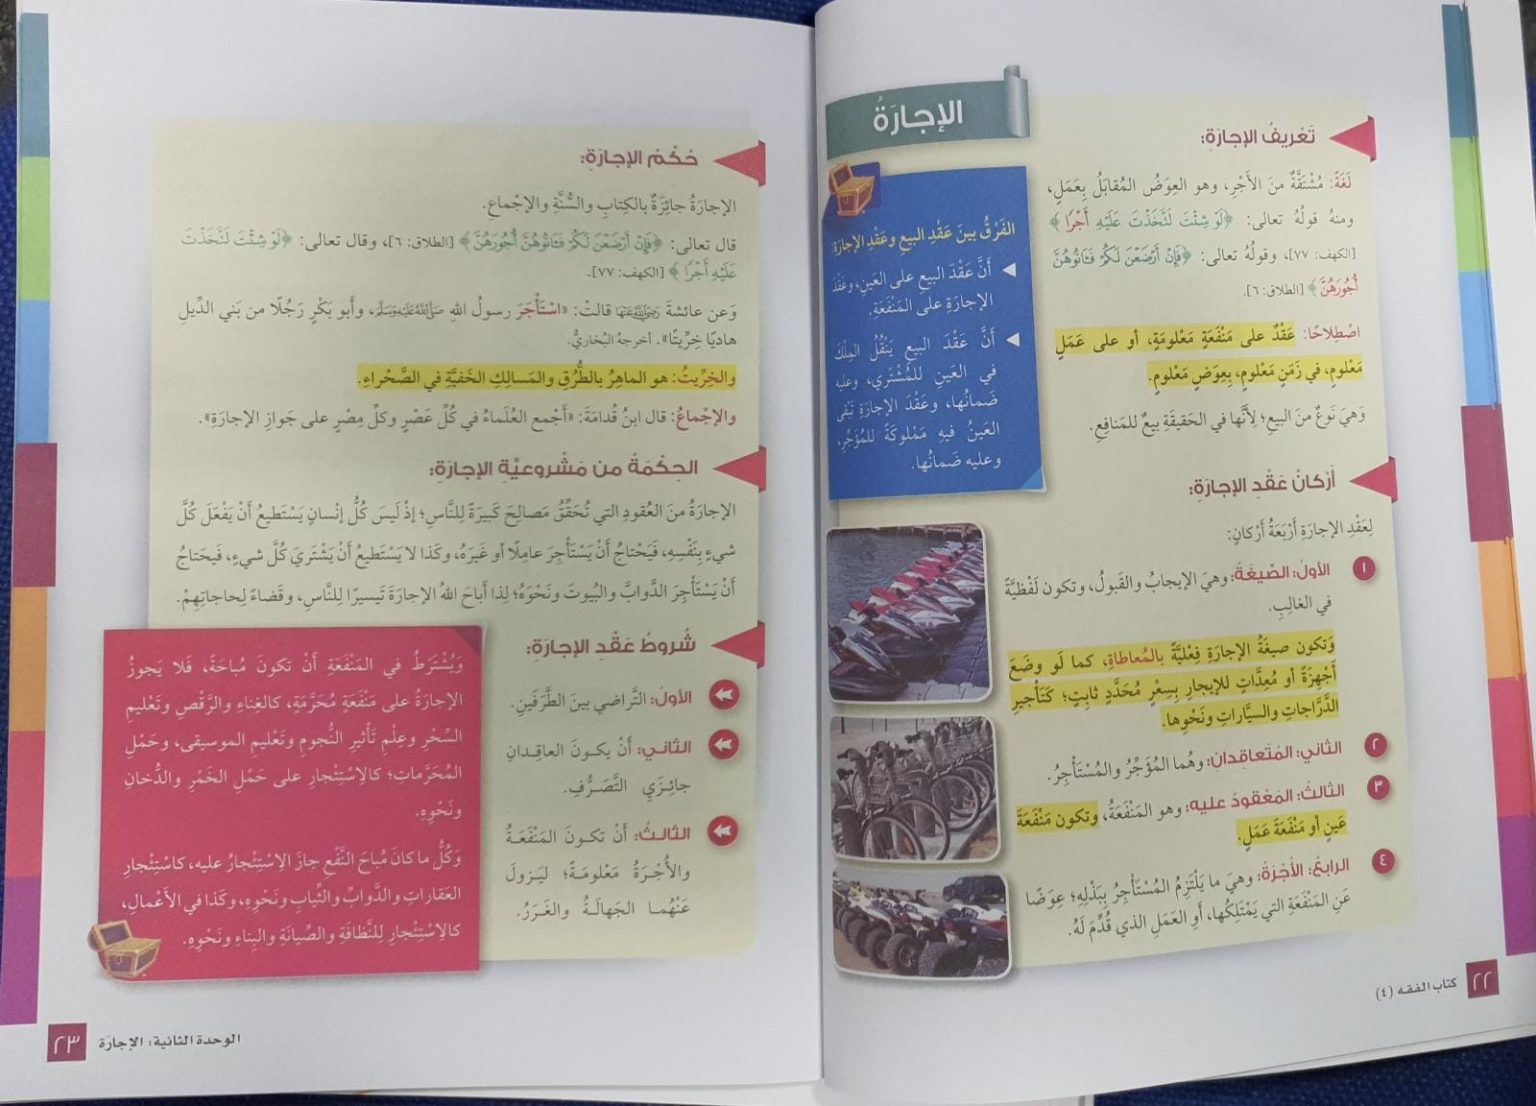 الإجارَةُ
تَعْرِيفُ الإجارَةِ:
لُغَةً: مُشْتَقَّةٌ منَ الأَجْرِ، وهو العِوَضُ المُقابَلُ بِعَمَلٍ،
ومنهُ قولُهُ تعالى: ﴿لَوْ شِئْتَ لَتَّخَذْتَ عَلَيْهِ أَجْرًا﴾
[الكهف: ٧٧]، وقولُهُ تعالى: ﴿فَإِنْ أَرْضَعْنَ لَكُمْ فَـَٔاتُوهُنَّ
أُجُورَهُنَّ﴾ [الطلاق: ٦].
اصْطِلاحًا: عَقْدٌ على مَنْفَعَةٍ مَعْلومَةٍ، أو على عَمَلٍ
مَعْلومٍ، في زَمَنٍ مَعْلومٍ، بِعِوَضٍ مَعْلومٍ.
وَهيَ نَوعٌ منَ البيعِ؛ لِأَنَّها في الحَقيقَةِ بيعٌ للمَنافِعِ.
الفَرْقُ بينَ عَقْدِ البيعِ وعَقْدِ الإجارَةِ:
أَنَّ عَقْدَ البيعِ على العَينِ، وعَقْدَ
الإجارَةِ على المَنْفَعَةِ.
أَنَّ عَقْدَ البيعِ يَنْقُلُ المِلْكَ
في العَينِ للمُشْتَري، وعليه
ضَمانُها، وعَقْدَ الإجارَةِ تَبْقى
العَينُ فيهِ مَمْلوكَةً للمُؤَجِّرِ،
وعليه ضَمانُها.
أَرْكانُ عَقْدِ الإجارَةِ:
لِعَقْدِ الإجارَةِ أَرْبَعَةُ أَرْكانٍ:
١ الأولُ: الصِّيغَةُ: وهيَ الإيجابُ والقَبولُ، وتكون لَفْظِيَّةً
في الغالِبِ.
وَتكون صيغَةُ الإجارَةِ فِعْليَّةً بالمُعاطاةِ، كما لَو وضَعَ
أَجْهِزَةً أو مُعِدَّاتٍ للإيجارِ بِسِعْرٍ مُحَدَّدٍ ثابِتٍ؛ كَتَأْجيرِ
الدَّرَّاجاتِ والسيَّاراتِ ونَحْوِها.
٢ الثاني: المُتَعاقِدانِ: وهُما المُؤَجِّرُ والمُسْتَأْجِرُ.
٣ الثالثُ: المَعْقودُ عليهِ: وهو المَنْفَعَةُ، وتكون مَنْفَعَةَ
عَينٍ أو مَنْفَعَةَ عَمَلٍ.
٤ الرابعُ: الأُجْرَةُ: وهيَ ما يَلْتَزِمُ المُسْتَأْجِرُ بِبَذْلِهِ؛ عِوَضًا
عَنِ المَنْفَعَةِ التي يَمْتَلِكُها، أَوِ العَمَلِ الذي قُدِّمَ لَهُ.
٢٢ كتاب الفقه (٤)
حُكْمُ الإجارَةِ:
الإجارَةُ جائِزَةٌ بالكِتابِ والسُّنَّةِ والإجْماعِ.
قال تعالى: ﴿فَإِنْ أَرْضَعْنَ لَكُمْ فَـَٔاتُوهُنَّ أُجُورَهُنَّ﴾ [الطلاق: ٦]، وقال تعالى: ﴿لَوْ شِئْتَ لَتَّخَذْتَ
عَلَيْهِ أَجْرًا﴾ [الكهف: ٧٧].
وَعن عائشةَ رَضِيَ اللَّهُ عَنْهَا قالتْ: «اسْتَأْجَرَ رسولُ اللهِ صَلَّى اللَّهُ عَلَيْهِ وَسَلَّمَ، وأَبو بَكْرٍ رَجُلًا من بَني الدِّيلِ
هاديًا خِرِّيتًا». أخرجهُ البُخاريُّ.
والخِرِّيتُ: هو الماهِرُ بالطُّرُقِ والمَسالِكِ الخَفيَّةِ في الصَّحْراءِ.
والإجْماعُ: قال ابنُ قُدامَةَ: «أَجْمع العُلَماءُ في كُلِّ عَصْرٍ وكلِّ مِصْرٍ على جَوازِ الإجارَةِ».
الحِكْمَةُ من مَشْروعيَّةِ الإجارَةِ:
الإجارَةُ منَ العُقودِ التي تُحَقِّقُ مَصالِحَ كَبيرَةً لِلنَّاسِ؛ إذْ لَيسَ كُلُّ إنْسانٍ يَسْتَطيعُ أَنْ يَفْعَلَ كُلَّ
شيءٍ بِنَفْسِهِ، فَيَحْتاجُ أَنْ يَسْتَأْجِرَ عامِلًا أو غَيرَهُ، وكَذا لا يَسْتَطيعُ أَنْ يَشْتَريَ كُلَّ شيءٍ، فَيحَتاجُ
أَنْ يَسْتَأْجِرَ الدَّوابَّ والبُيوتَ ونَحْوَهُ؛ لِذا أَباحَ اللهُ الإجارَةَ تَيسيرًا لِلنَّاسِ، وقَضاءً لِحاجاتِهِمْ.
شُروطُ عَقْدِ الإجارَةِ:
الأولُ: التَّراضي بينَ الطَّرَفَينِ.
الثاني: أَنْ يكـونَ العاقِـدانِ
جائِـزَيِ التَّصَـرُّفِ.
الثالثُ: أَنْ تكـونَ المَنْفَعَـةُ
والأُجْـرَةُ مَعْلومَـةً؛ ليَـزولَ
عَنْهُما الجَهالَةُ والغَرَرُ.
وَيُشْتَرَطُ في المَنْفَعَةِ أَنْ تكونَ مُباحَةً، فَلا يَجوزُ
الإجارَةُ على مَنْفَعَةٍ مُحَرَّمَةٍ، كالغِناءِ والرَّقْصِ وتَعْليمِ
السِّحْرِ وعِلْمِ تَأْثيرِ النُّجومِ وتَعْليمِ الموسيقى، وحَمْلِ
المُحَرَّماتِ؛ كالِاسْتِئْجارِ على حَمْلِ الخَمْرِ والدُّخانِ
ونَحْوِهِ.
وَكُلُّ ما كانَ مُباحَ النَّفْعِ جازَ الِاسْتِئْجارُ عليه، كاسْتِئْجارِ
العَقاراتِ والدَّوابِّ والثِّيابِ ونَحْوِهِ، وكَذا في الأَعْمالِ،
كالِاسْتِئْجارِ للنَّظافَةِ والصِّيانَةِ والبِناءِ ونَحْوِهِ.
الوحدة الثانية: الإجارَة ٢٣